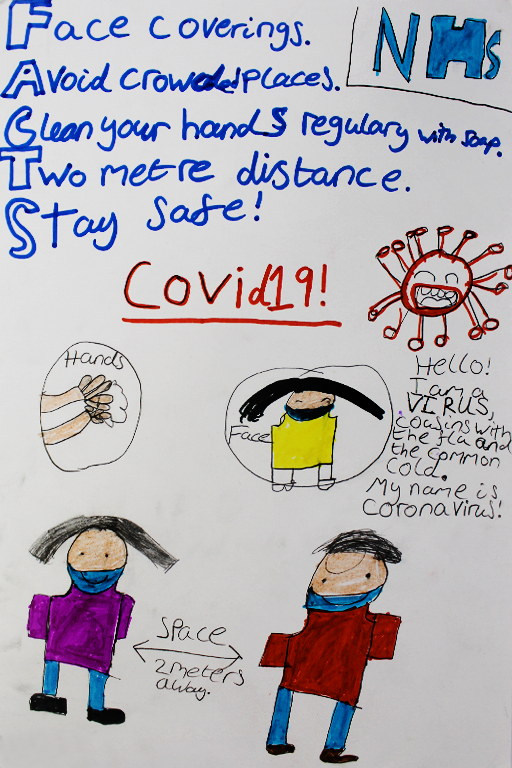 Face coverings.
NHS
Avoid crowded places.
Clean your hands regulary with soap.
Two metre distance.
Stay safe!
Covid19!
Hands
Face
Hello!
I am a
VIRUS,
cousins with
the flu and
the common
cold.
My name is
Coronavirus!
Space
2 meters
away.